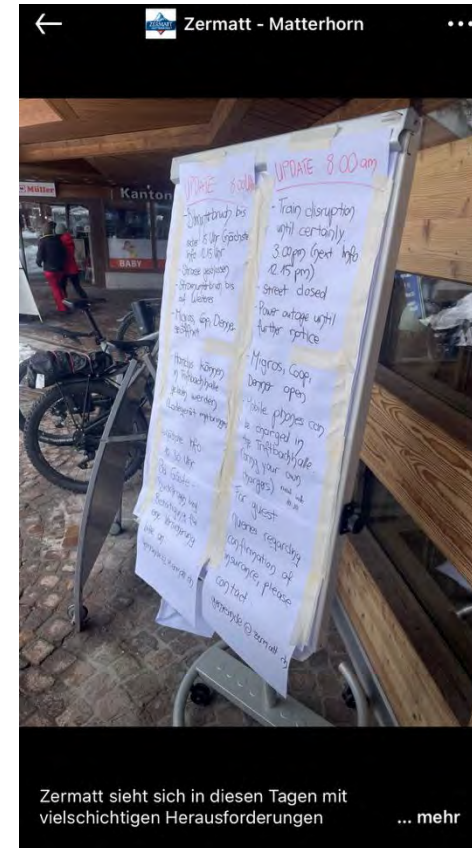 Zermatt - Matterhorn
Müller
Kanton
BABY
UPDATE
bis
Uhr
Info 12.15 Uhr
- Strasse
- Stromunterbruch bis
auf Weiteres
- Migros, Coop, Denner
geöffnet
- Handys können
in Triftbachhalle
geladen werden
Uhr
UPDATE 8:00 am
- Train disruption
until certainly
3.00pm (next Info
12.15 pm)
- Street closed
- Power outage until
further notice
- Migros, Coop,
Denner open
- Mobile phones can
be charged in
the Triftbachhalle
(bring your own
chargers)
For guest
queries regarding
confirmation of
insurance, please
contact
Zermatt sieht sich in diesen Tagen mit
vielschichtigen Herausforderungen
... mehr